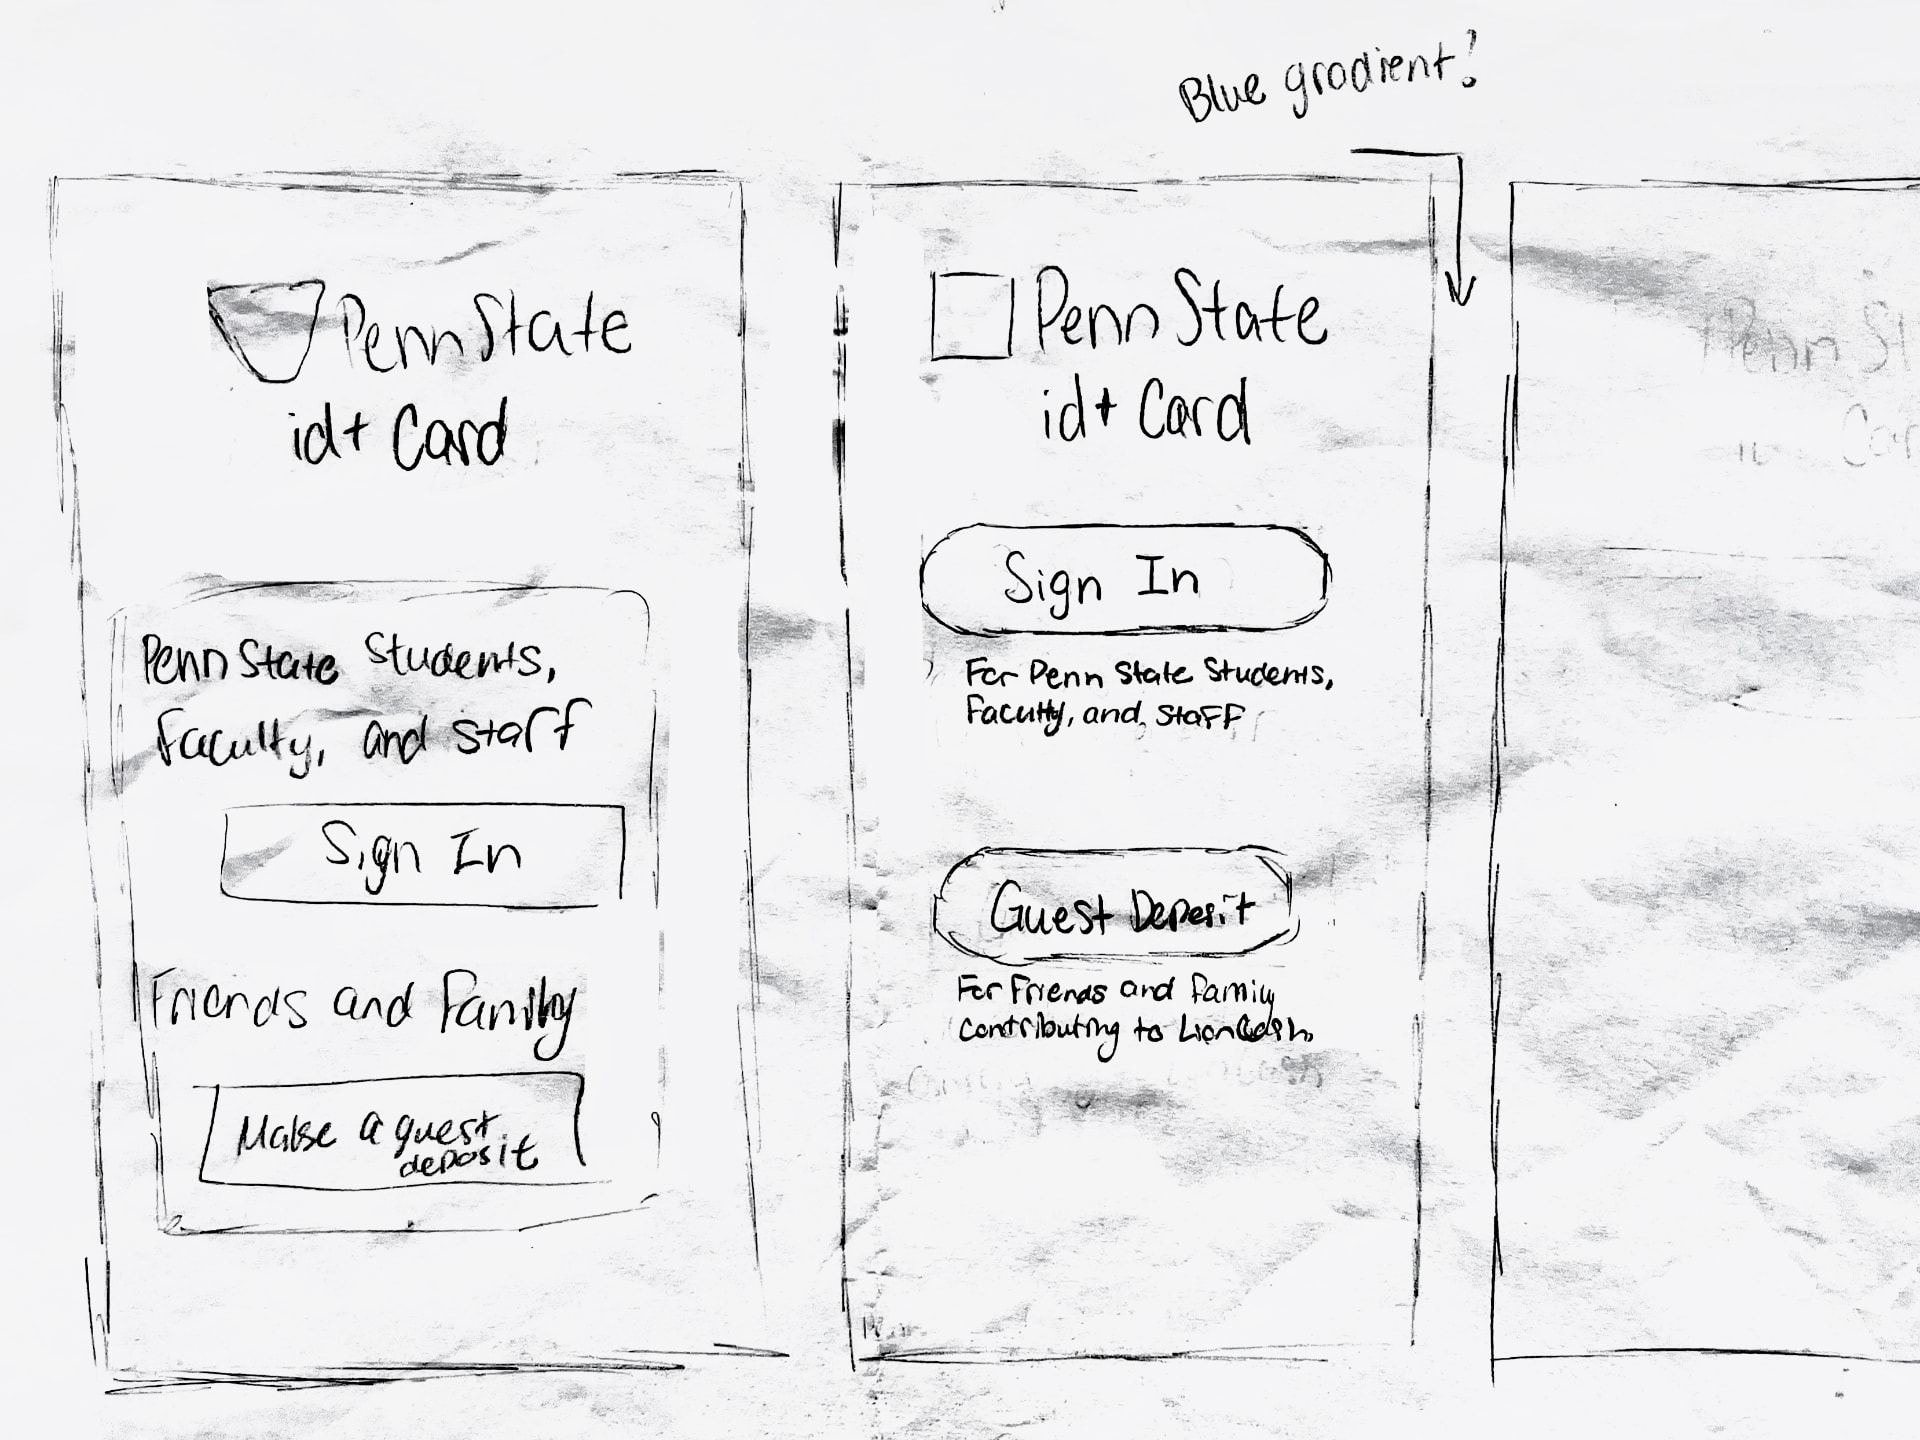 Blue gradient?
Penn State
id+ Card
Penn State Students,
faculty, and staff
Sign In
Friends and Family
Make a guest
deposit
Penn State
id+ Card
Sign In
For Penn State Students,
Faculty, and Staff
Guest Deposit
For Friends and Family
contributing to LionCash.
Penn St
Car